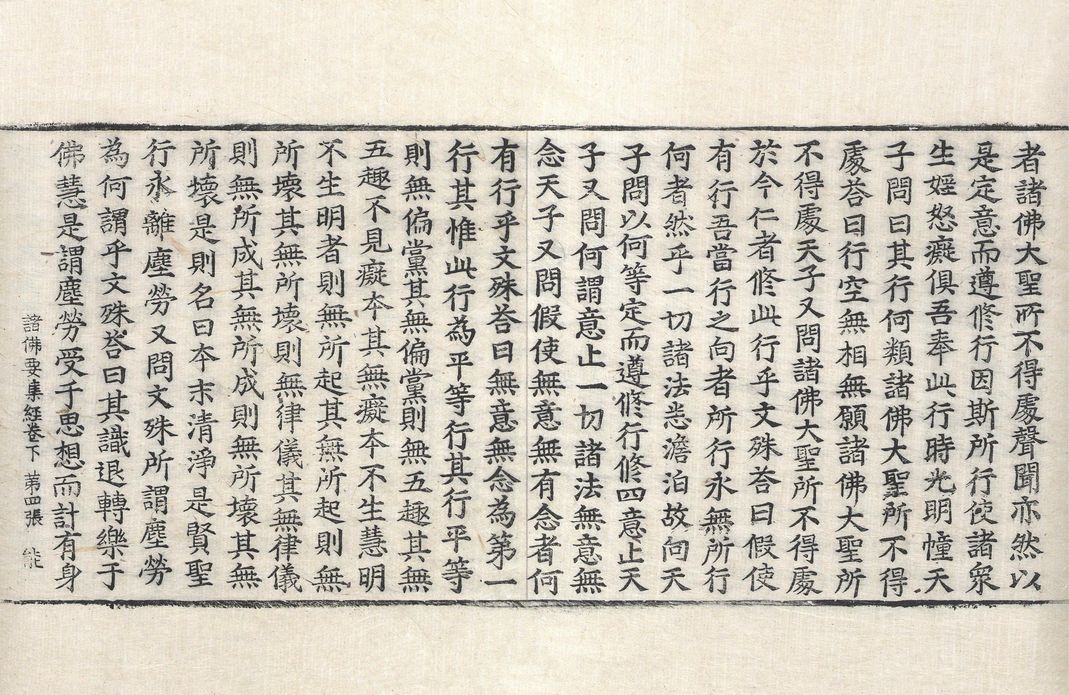 者諸佛大聖所不得處聲聞亦然以
是定意而遵修行因斯所行使諸衆
生婬怒癡俱吾奉此行時光明幢天
子問曰其行何類諸佛大聖所不得
處荅曰行空無相無願諸佛大聖所
不得處天子又問諸佛大聖所不得處
於今仁者修此行乎文殊荅曰假使
有行吾當行之向者所行永無所行
何者然乎一切諸法悉澹泊故向天
子問以何等定而遵修行修四意止天
子又問何謂意止一切諸法無意無
念天子又問假使無意無有念者何
有行乎文殊荅曰無意無念為第一
行其惟此行為平等行其行平等
則無偏黨其無偏黨則無五趣其無
五趣不見癡本其無癡本不生慧明
不生明者則無所起其無所起則無
所壞其無所壞則無律儀其無律儀
則無所成其無所成則無所壞其無
所壞是則名曰本末清淨是賢聖
行永離塵勞又問文殊所謂塵勞
為何謂乎文殊荅曰其識退轉樂于
佛慧是謂塵勞受千思想而計有身
諸佛要集經卷下 第四張 能